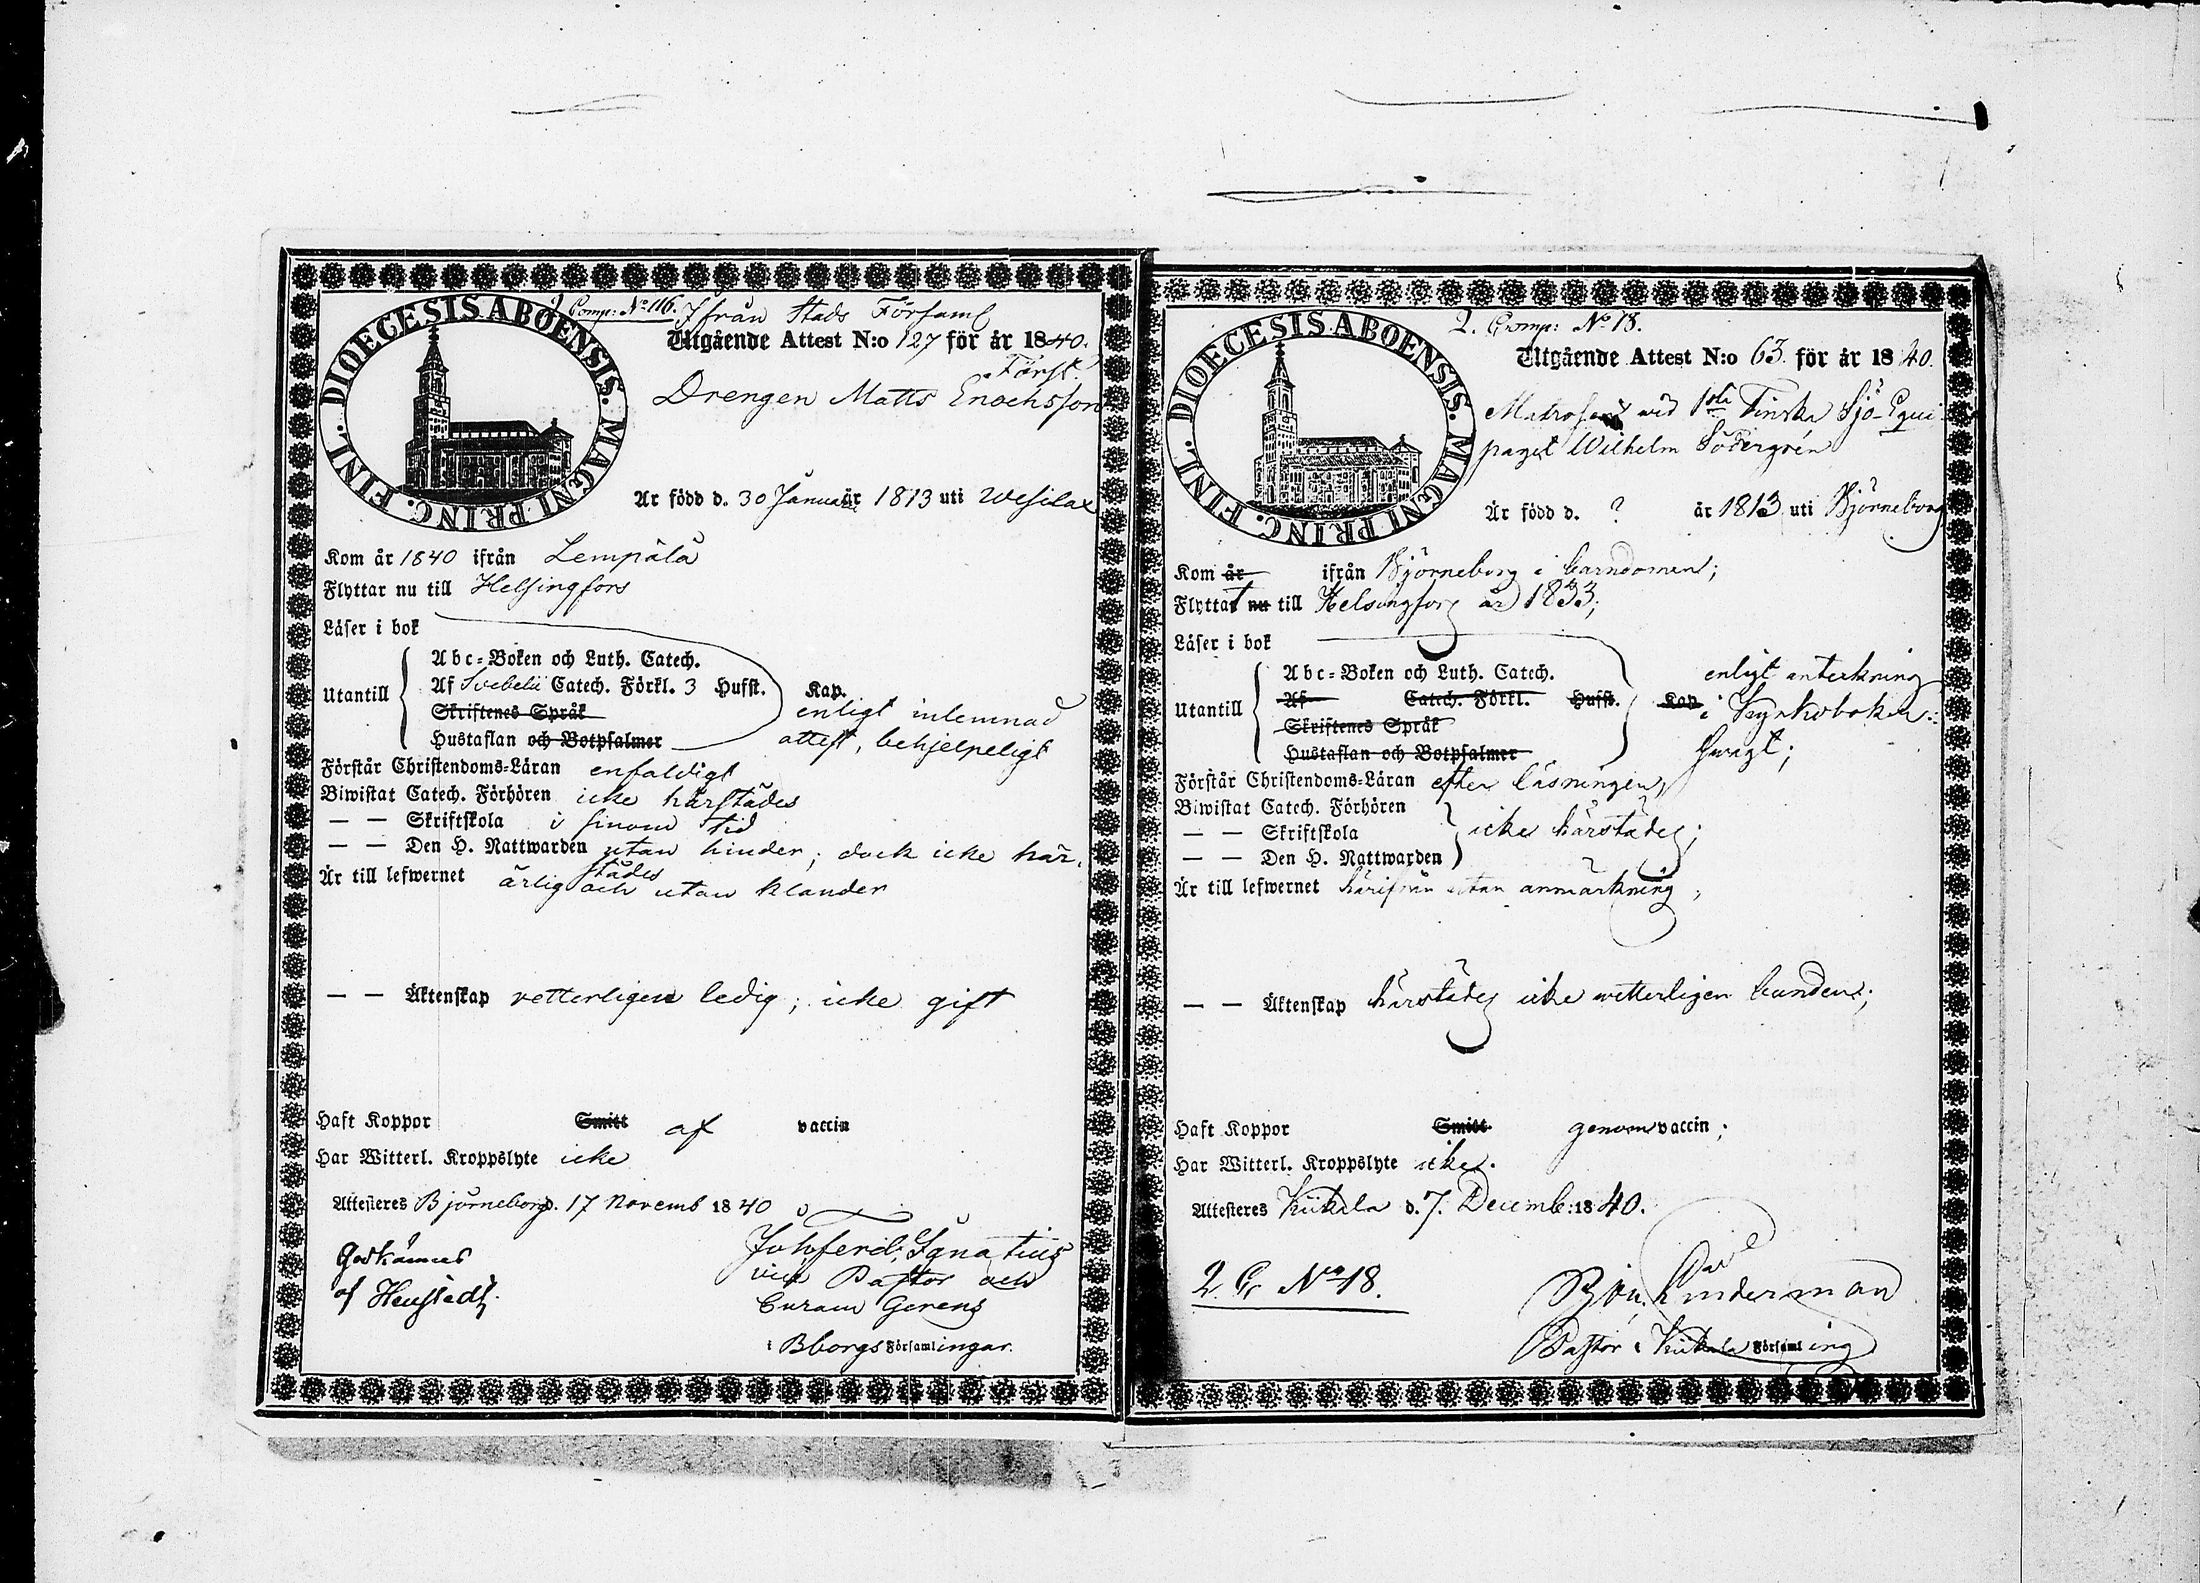 DIOECESIS ABOENSIS. MAGNI PRINC. FINL.
Comp: No 116. Ifrån Stads Församl
Utgående Attest N:o 127 för år 1840.
Först.
Drengen Matts Enochsson
Är född d. 30 Januar är 1813 uti Wesilax
Kom år 1840 ifrån Lempälä
Flyttar nu till Helsingfors
Läser i bok
Utantill
Abc-Boken och Luth. Catech.
Af Svebelii Catech. Förkl. 3 Hufst. Kap.
Skriftenes Språk
Hustaflan och Botpsalmer
enligt inlemnad
attest, behjelpeligt
Förstår Christendoms-Läran enfaldigt
Biwistat Catech. Förhören icke härstädes
— — Skriftskola i sinom tid
— — Den H. Nattwarden utan hinder; dock icke här-
städes
Är till lefwernet ärlig och utan klander
— — Äktenskap vetterligen ledig; icke gift
Haft Koppor Smitt af vaccin
Har Witterl. Kroppslyte icke
Attesteres Björneborg d. 17 Novemb 1840
Godkännes
Joh Ferd. Ignatius
vice Pastor och
Curam Gerens
i Bborgs Församlingar.
DIOECESIS ABOENSIS. MAGNI PRINC. FINL.
2. Comp: No 18.
Utgående Attest N:o 63. för år 1840.
Matrosen wid 1sta Finska Sjö-Equi
paget Wilhelm Södergrén
Är född d. ? år 1813 uti Björneborg
Kom år ifrån Björneborg i barndomen;
Flyttat nu till Helsingfors år 1833;
Läser i bok
Utantill
Abc-Boken och Luth. Catech.
Af Catech. Förkl. Hufst. Kap.
Skriftenes Språk
Hustaflan och Botpsalmer
enligt anteckning
i Kyrkoboken:
swagt;
Förstår Christendoms-Läran efter läsningen,
Biwistat Catech. Förhören
— — Skriftskola icke härstädes;
— — Den H. Nattwarden
Är till lefwernet härifrån utan anmärkning,
— — Äktenskap härstädes icke wetterligen bunden;
Haft Koppor Smitt genom vaccin;
Har Witterl. Kroppslyte icke.
Attesteres Kiikala d. 7. Decemb: 1840.
2 C. No 18.
Pastor i Kiikala Församling